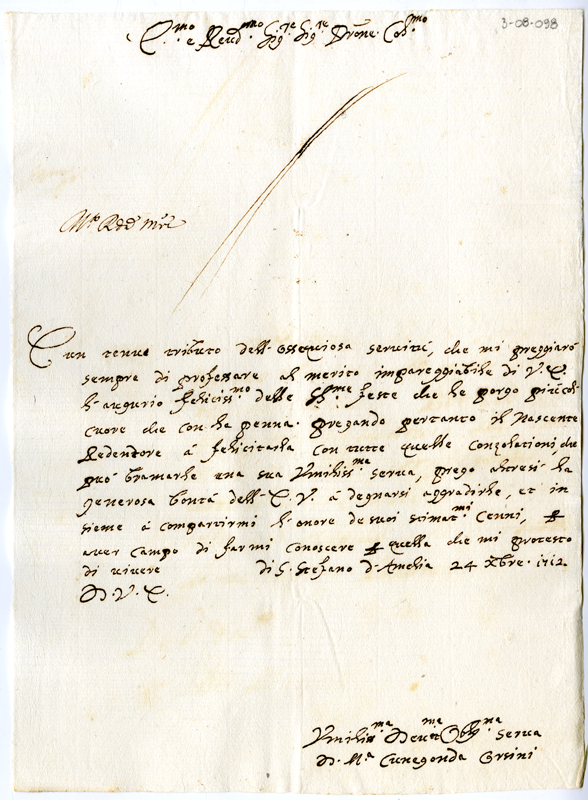 3-08-098
E.mo e Reud.mo Sig.re Sig.re Prone Col.mo
É un tenue tributo dell'ossequiosa seruitù, che mi preggiarò
sempre di professare al merito impareggiabile di V. E.
l'augurio feliciss.mo delle S.me feste che le porgo più col
cuore che con la penna. pregando pertanto il Nascente
Redentore à felicitarla con tutte quelle conzolationi, che
può bramarle una sua Vmiliss.ma serua, prego altresì la
generosa bontà dell'E. V. à degnarsi aggradirle, et in
sieme à compartirmi l'onore de suoi stimat.mi Cenni, p
auer campo di farmi conoscere p quella che mi protesto
di uiuere di S. Stefano d'Amelia 24 Xbre. 1712
D. V. E.
Vmiliss.ma Deuot.ma Obl.ma Serua
D. M.a Cunegonda Orsini